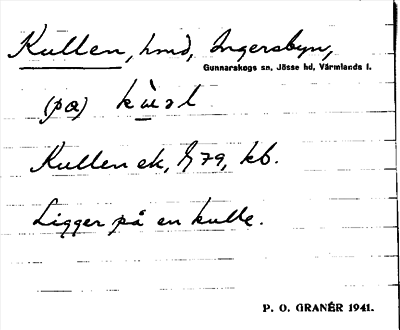 Kullen, hmd, Ingersbyn,
Gunnarskogs sn, Jösse hd, Värmlands l.
(pa)
Kullen ek, 79, kb.
Ligger på en kulle.
P. O. GRANÉR 1941.